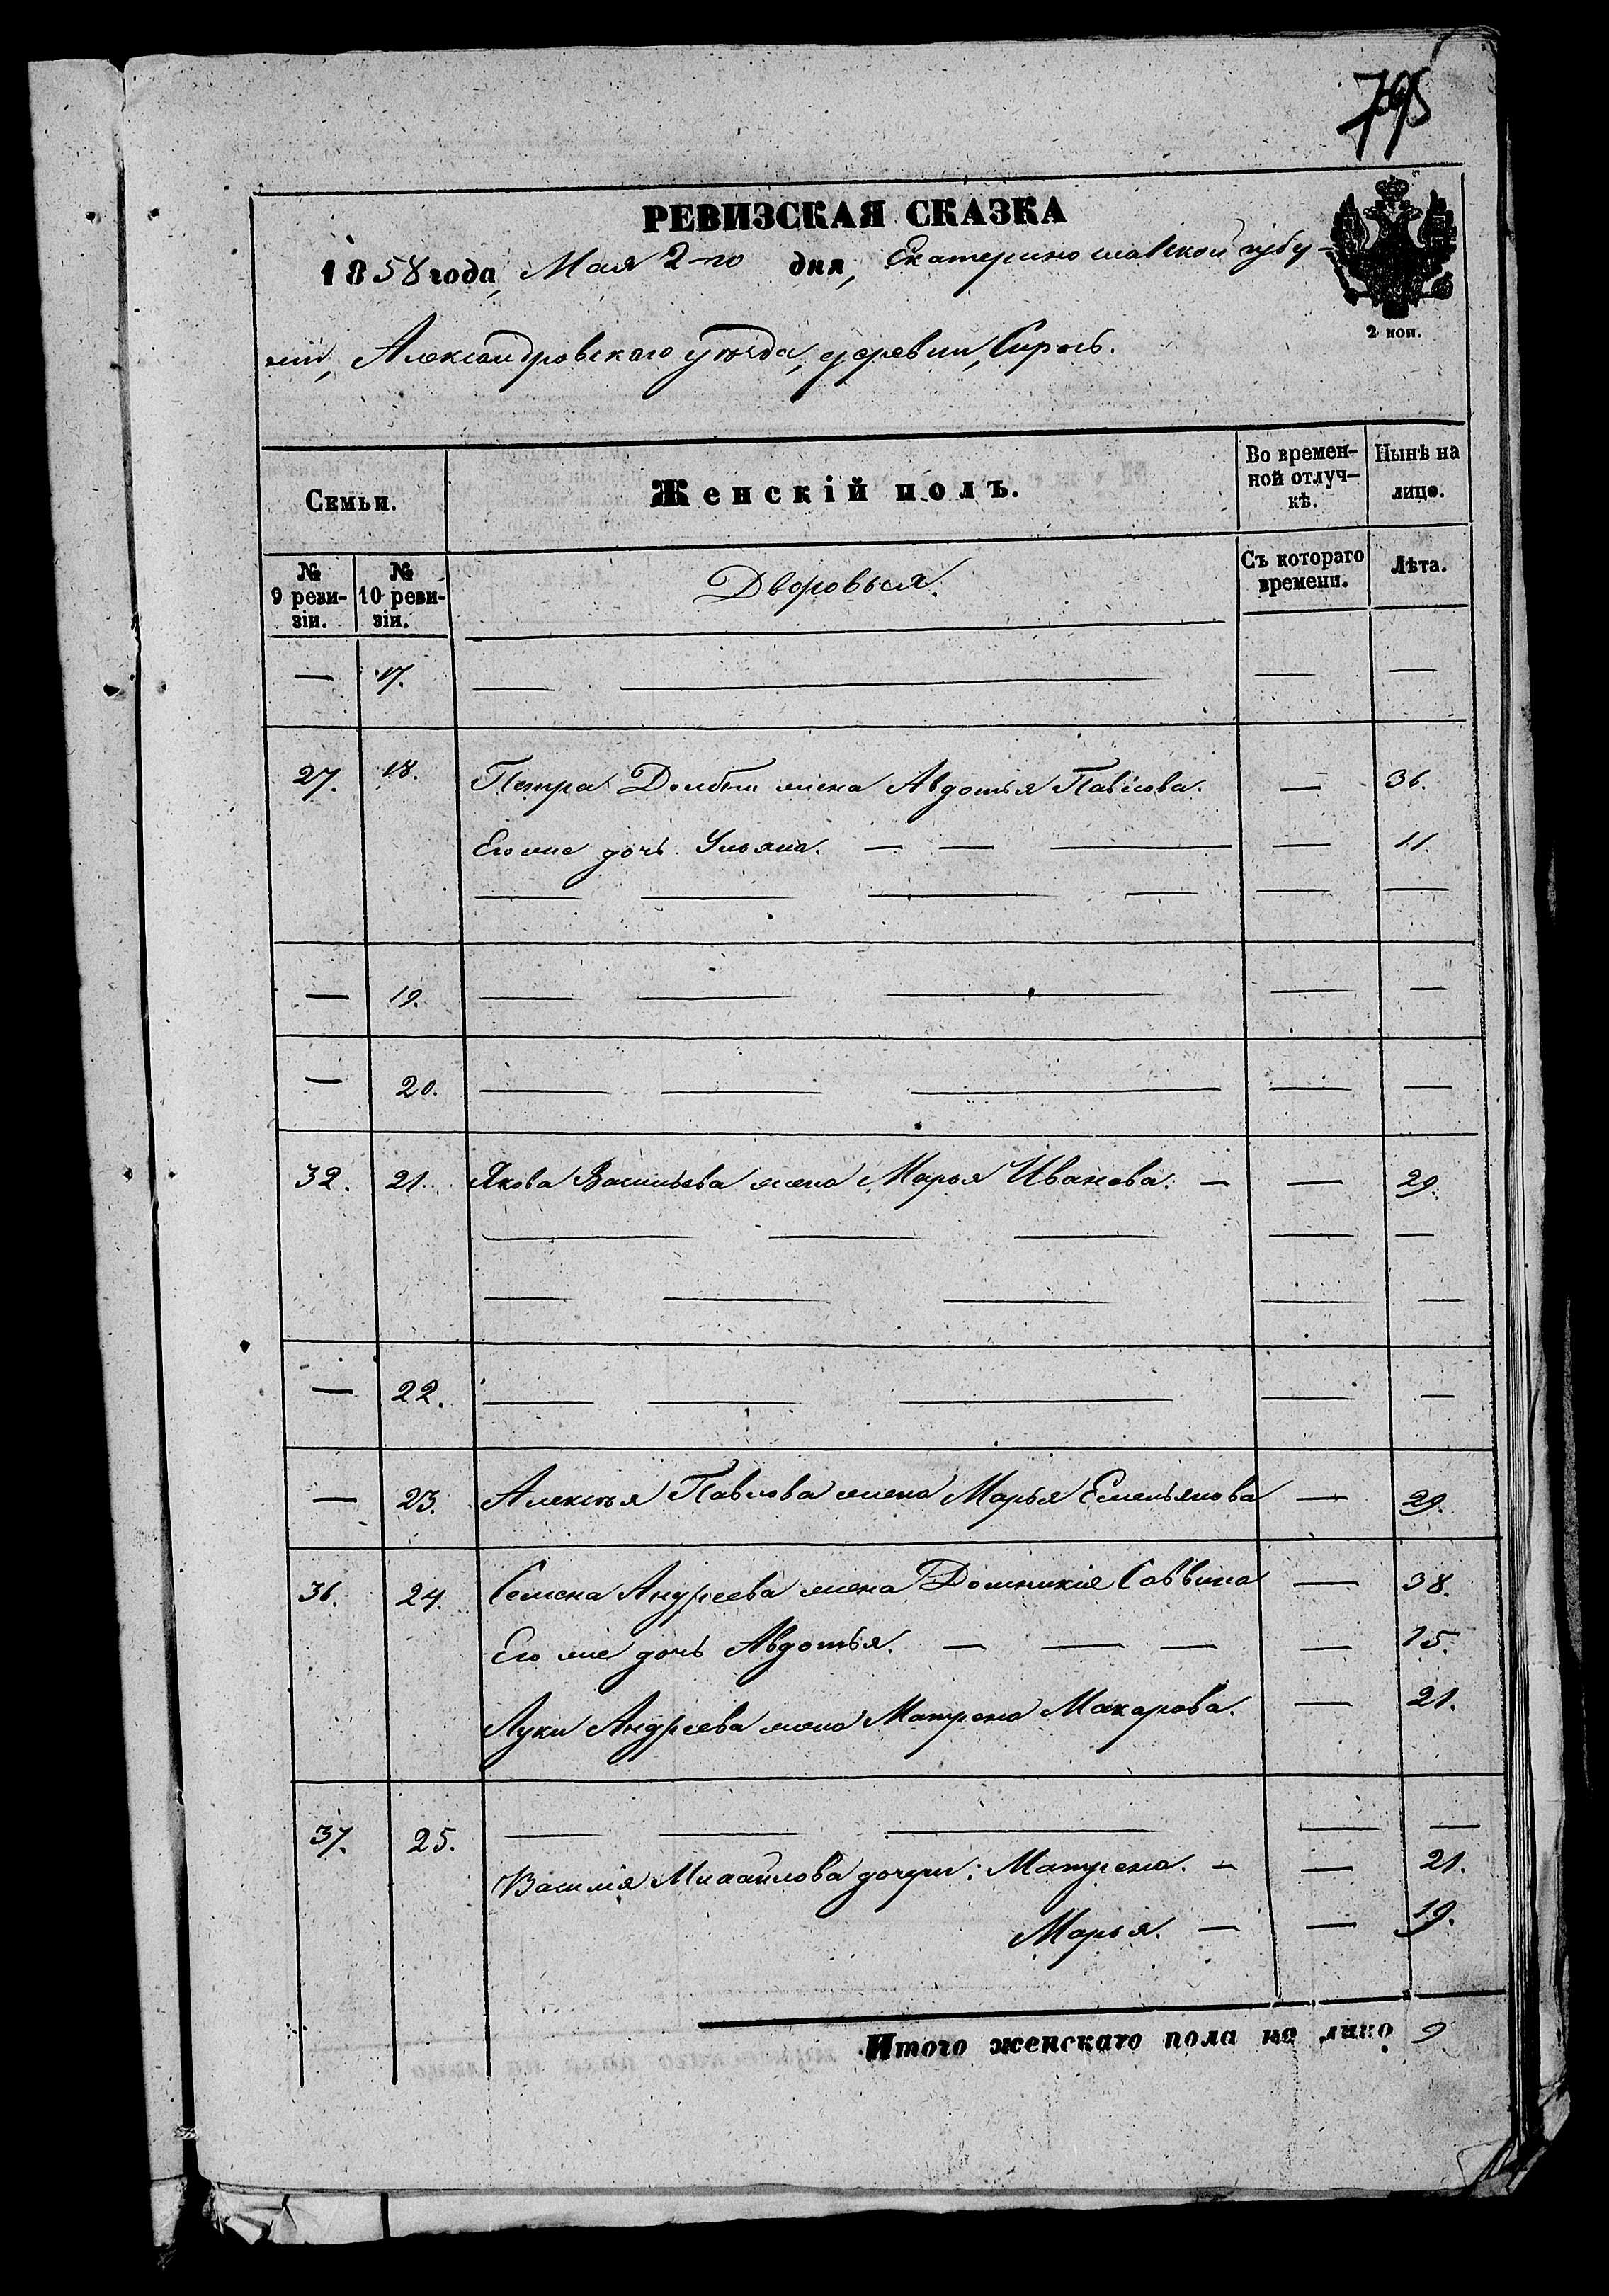 795
РЕВИЗСКАЯ СКАЗКА
1858 года, Мая 2-го дня, Екатеринославской губер-
нии, Александровскаго уѣзда, деревни,
2 коп.
Семьи.
Женскій полъ.
Во времен-
ной отлуч-
кѣ.
Нынѣ на
лицо.
№
9 реви-
зіи.
№
10 реви-
зіи.
Дворовыя.
Съ котораго
времени.
Лѣта.
— 17. — — — —
27. 18. Петра жена Авдотья Павлова. — 36.
Его же дочь Ульяна. — — — — 11.
— — — — — —
— 19. — — — — —
— 20. — — — — —
32. 21. Якова Васильева жена Марья Иванова. — — 29.
— — — — —
— — — — —
— 22. — — — — —
— 23. Алексѣя Павлова жена Марья Емельянова — 29.
36. 24. Семена Андреева жена Домникія Саввина — 38.
Его же дочь Авдотья. — — — — 15.
Луки Андреева жена Матрена Макарова. — 21.
37. 25. — — — — —
Василія Михайлова дочери: Матрена. — — 21.
Марья. — — 19.
Итого женскаго пола на лицо 9